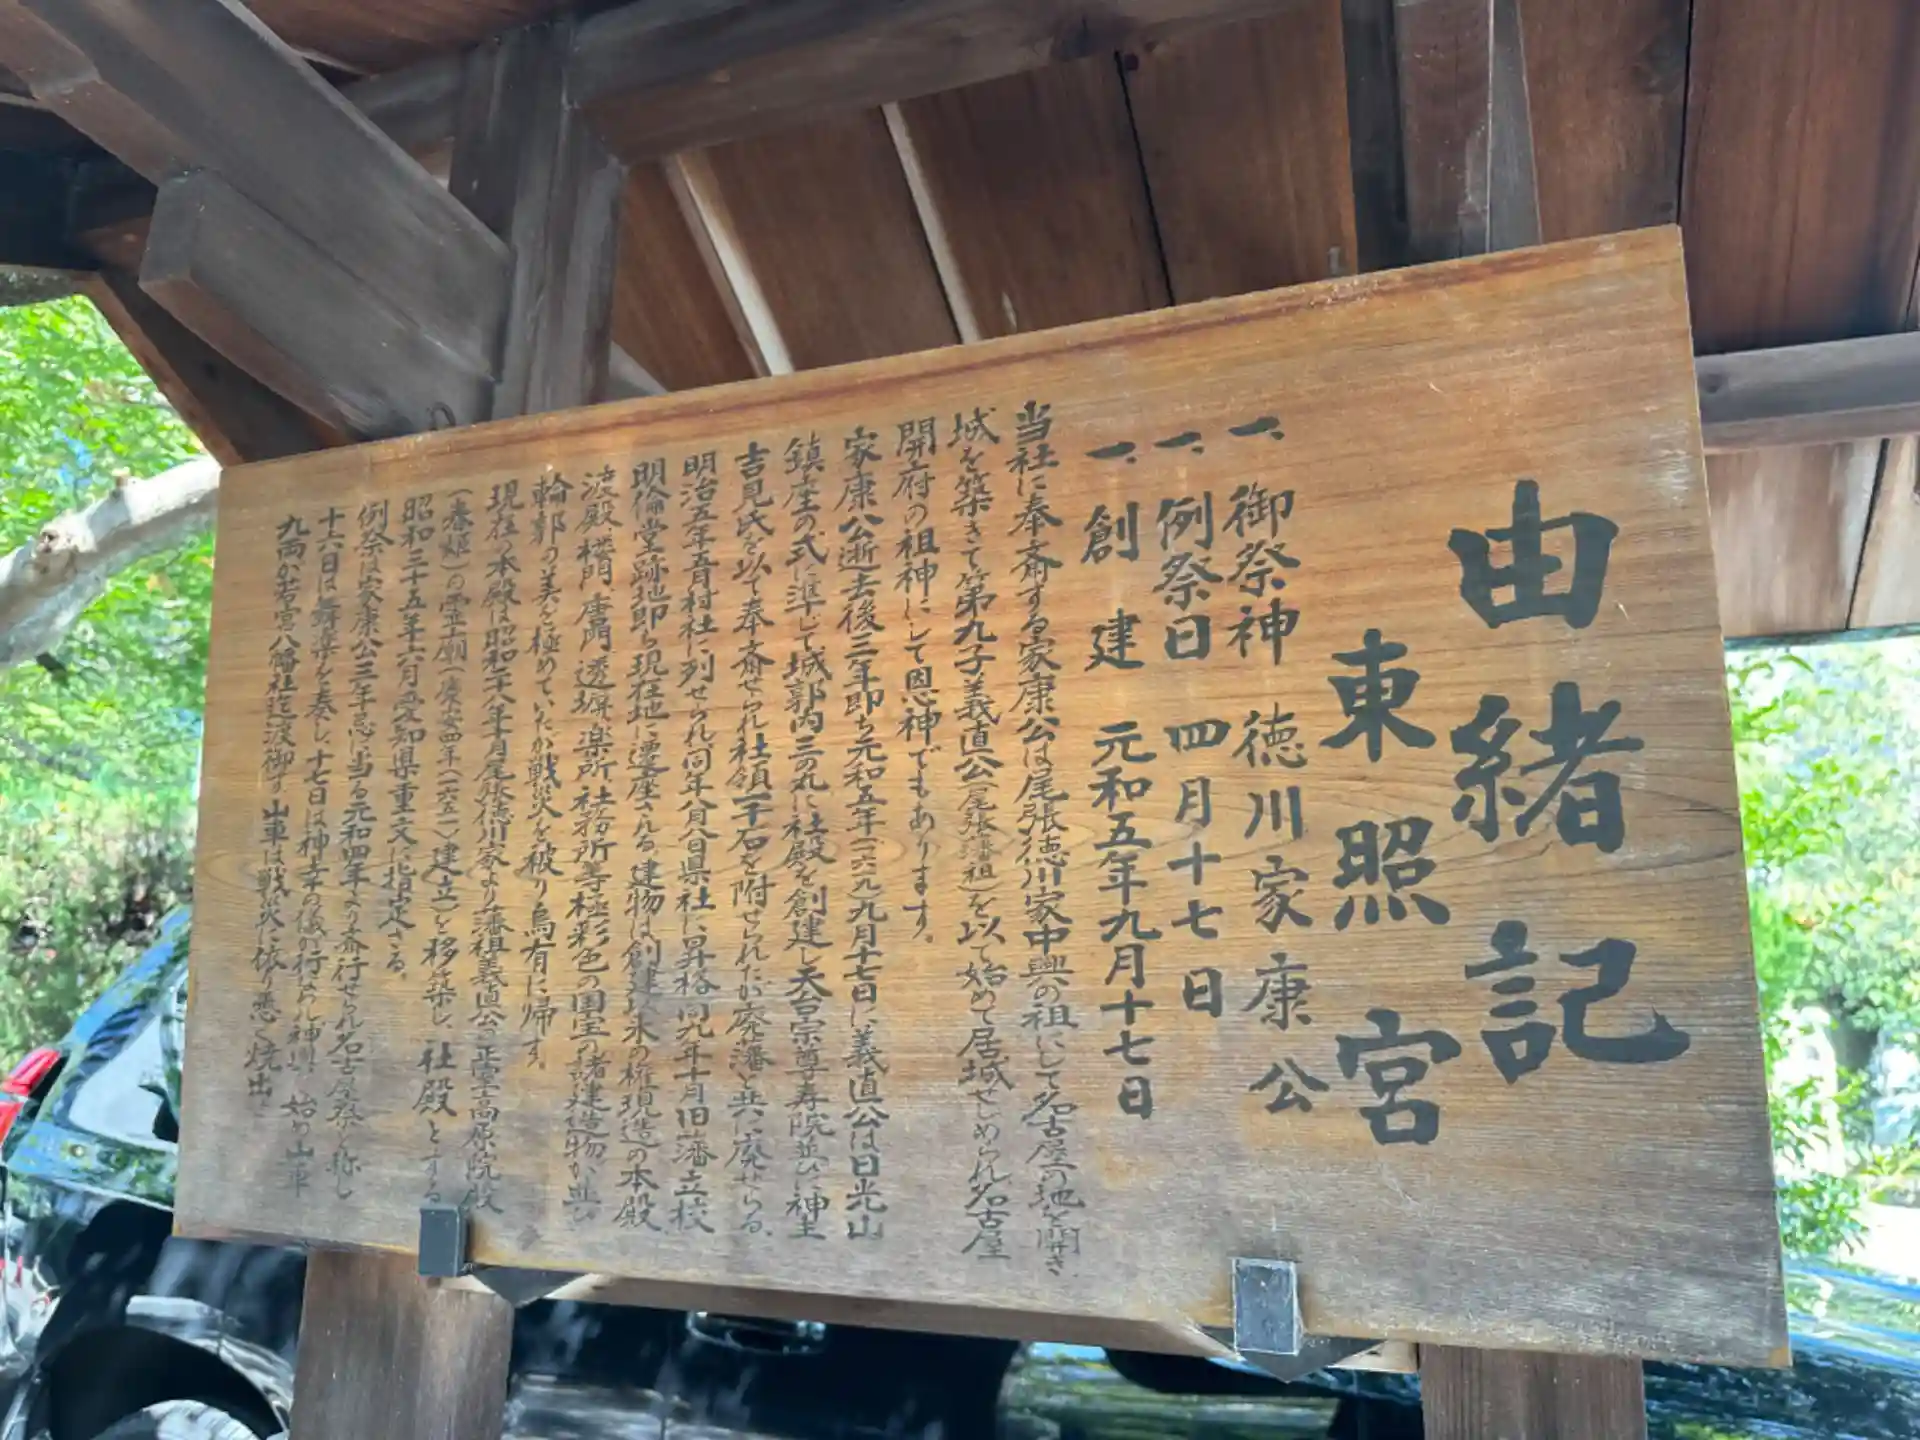 由緒記
東照宮
一、御祭神 徳川家康公
一、例祭日 四月十七日
一、創建 元和五年九月十七日
当社に奉斎する家康公は尾張徳川家中興の祖にして名古屋の地を開き
城を築きて第九子義直公(尾張藩祖)を以て始めて居城せしめられ名古屋
開府の祖神にして恩神でもあります。
家康公逝去後三年即ち元和五年(一六一九)九月十七日に義直公は日光山
鎮座の式に準じて城郭内三の丸に社殿を創建し天台宗尊寿院並びに神主
吉見氏を以て奉斎せられ社領一千石を附せられたが廃藩と共に廃せらる。
明治五年五月村社に列せられ同年八月八日県社に昇格同九年十月旧藩立校
明倫堂跡地即ち現在地に遷座される。建物は創建以来の権現造の本殿
渡殿、楼門、唐門、透塀、楽所、社務所等極彩色の国宝の諸建造物が並び
輪郭の美を極めていたが戦災を被り烏有に帰す。
現在の本殿は昭和二十八年十月尾張徳川家より藩祖義直公の正室高原院殿
(春姫)の霊廟(慶安四年(一六五一)建立)を移築し、社殿とする
昭和三十五年六月愛知県重文に指定さる。
例祭は家康公三年忌に当る元和四年より斎行せられ名古屋祭と称し
十六日は舞楽を奏し、十七日は神幸の儀が行はれ神輿、始め山車
九両が若宮八幡社迄渡御す山車は戦災に依り悉く焼出